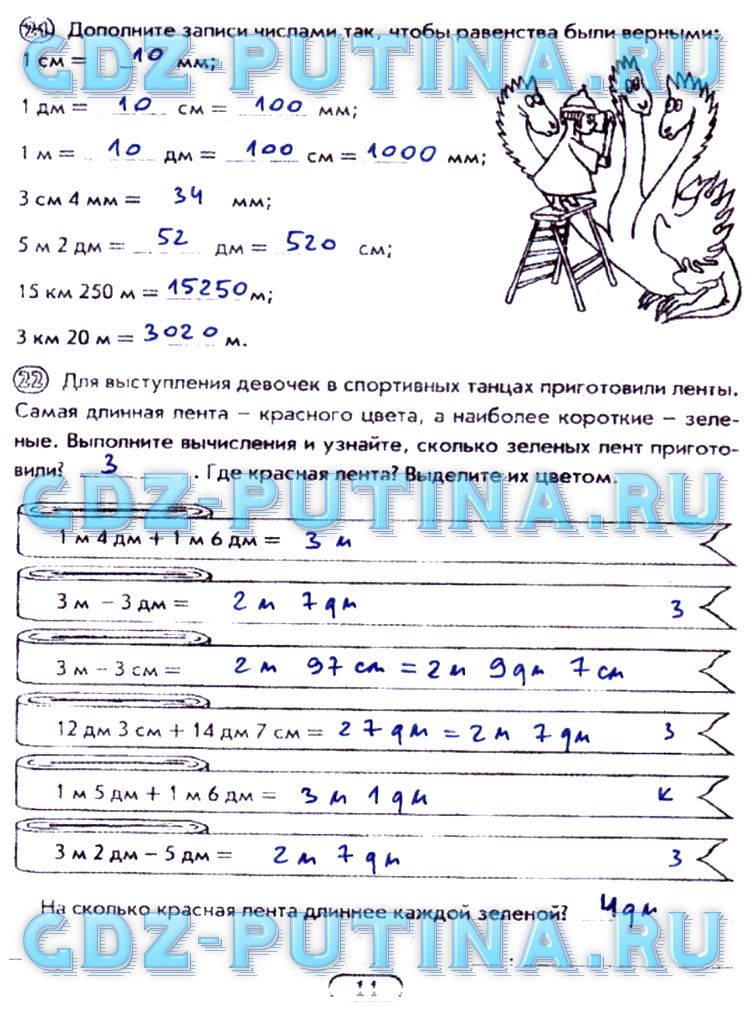 21 Дополните записи числами так, чтобы равенства были верными:
1 см = 10 мм;
GDZ-PUTINA.RU
1 дм = 10 см = 100 мм;
1 м = 10 дм = 100 см = 1000 мм;
3 см 4 мм = 34 мм;
5 м 2 дм = 52 дм = 520 см;
15 км 250 м = 15250 м;
3 км 20 м = 3020 м.
22 Для выступления девочек в спортивных танцах приготовили ленты.
Самая длинная лента – красного цвета, а наиболее короткие – зеле-
ные. Выполните вычисления и узнайте, сколько зеленых лент пригото-
вили? 3 . Где красная лента? Выделите их цветом.
GDZ-PUTINA.RU
1 м 4 дм + 1 м 6 дм = 3 м
3 м – 3 дм = 2 м 7 дм З
3 м – 3 см = 2 м 97 см = 2 м 9 дм 7 см
12 дм 3 см + 14 дм 7 см = 27 дм = 2 м 7 дм З
1 м 5 дм + 1 м 6 дм = 3 м 1 дм К
3 м 2 дм – 5 дм = 2 м 7 дм З
На сколько красная лента длиннее каждой зеленой? 4 дм
GDZ-PUTINA.RU
11